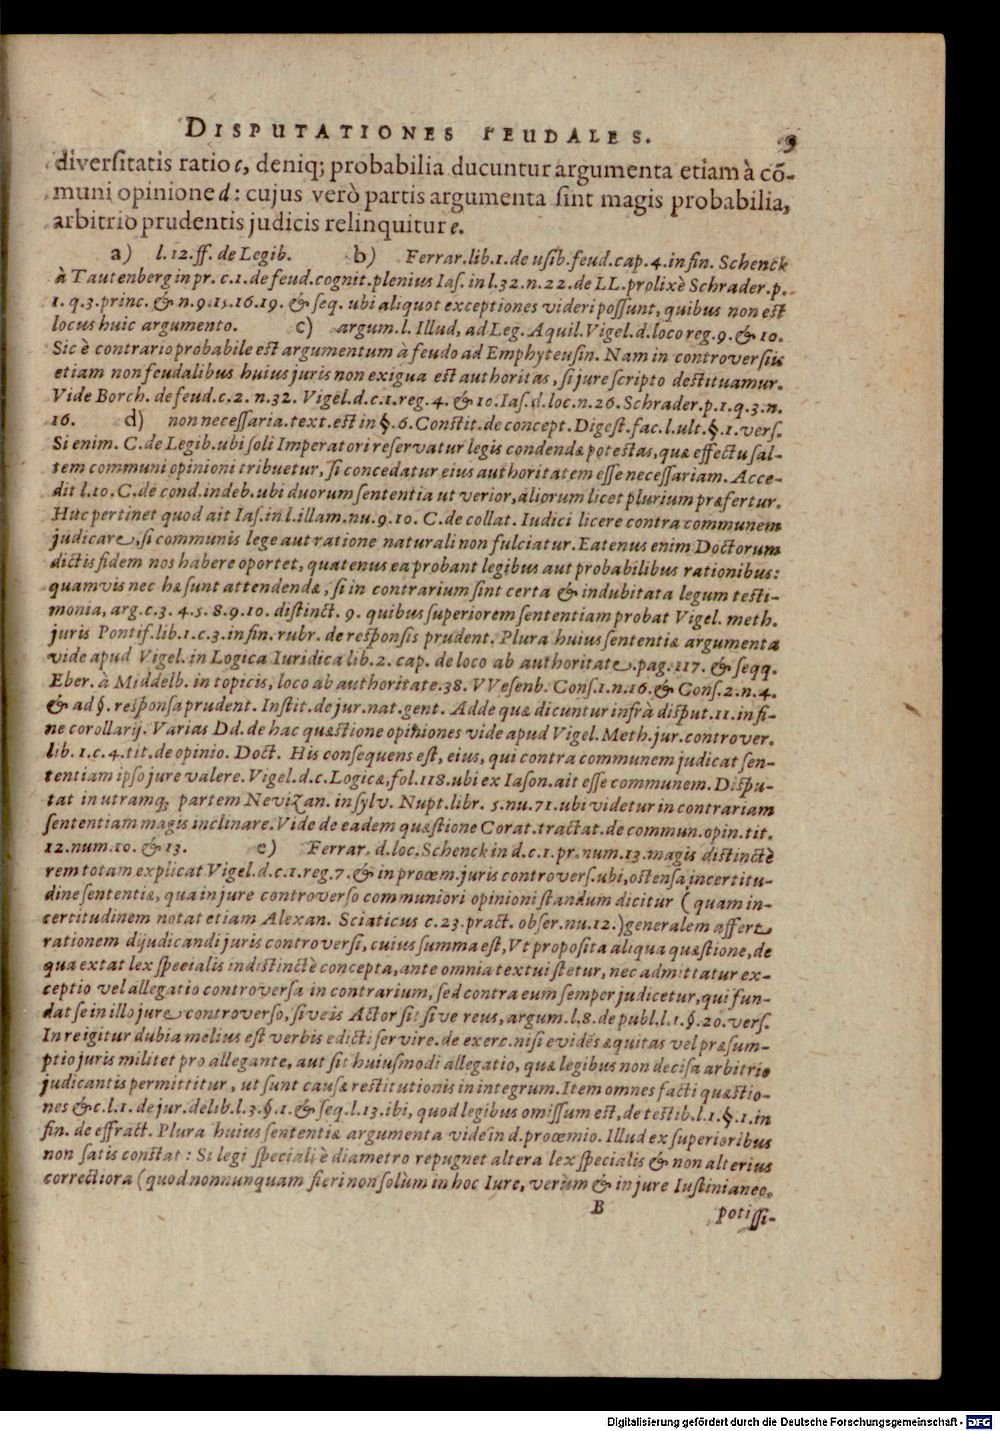 DISPUTATIONES FEUDALES. 9
diversitatis ratio c, deniq; probabilia ducuntur argumenta etiam à cõ-
muni opinione d: cujus verò partis argumenta sint magis probabilia,
arbitrio prudentis judicis relinquitur e.
a) l. 12. ff. de Legib. b) Ferrar. lib. 1. de usib. feud. cap. 4. in fin. Schenck
à Tautenberg in pr. c. 1. de feud. cognit. plenius Ias. in l. 32. n. 22. de LL. prolixè Schrader. p.
1. q. 3. princ. & n. 9. 15. 16. 19. & seq. ubi aliquot exceptiones videri possunt, quibus non est
locus huic argumento. c) argum. l. Illud, ad Leg. Aquil. Vigel. d. loco reg. 9. & 10.
Sic è contrario probabile est argumentum à feudo ad Emphyteusin. Nam in controversiis
etiam non feudalibus huius juris non exigua est authoritas, si jure scripto destituamur.
Vide Borch. de feud. c. 2. n. 32. Vigel. d. c. 1. reg. 4. & 10. Ias. d. loc. n. 26. Schrader. p. 1. q. 3. n.
16. d) non necessaria. text. est in §. 6. Constit. de concept. Digest. fac. l. ult. §. 1. vers.
Si enim. C. de Legib. ubi soli Imperatori reservatur legis condendæ potestas, quæ effectu sal-
tem communi opinioni tribuetur, si concedatur eius authoritatem esse necessariam. Acce-
dit l. 10. C. de cond. indeb. ubi duorum sententia ut verior, aliorum licet plurium præfertur.
Huc pertinet quod ait Ias. in l. illam. nu. 9. 10. C. de collat. Iudici licere contra communem
judicare, si communis lege aut ratione naturali non fulciatur. Eatenus enim Doctorum
dictis fidem nos habere oportet, quatenus ea probant legibus aut probabilibus rationibus:
quamvis nec hæ sunt attendendæ, si in contrarium sint certa & indubitata legum testi-
monia, arg. c. 3. 4. 5. 8. 9. 10. distinct. 9. quibus superiorem sententiam probat Vigel. meth.
juris Pontif. lib. 1. c. 3. in fin. rubr. de responsis prudent. Plura huius sententiæ argumenta
vide apud Vigel. in Logica Iuridica lib. 2. cap. de loco ab authoritate. pag. 117. & seqq.
Eber. à Middelb. in topicis, loco ab authoritate. 38. VVesenb. Cons. 1. n. 16. & Cons. 2. n. 4.
& ad §. responsa prudent. Instit. de jur. nat. gent. Adde quæ dicuntur infrà disput. 11. in fi-
ne corollarij. Varias Dd. de hac quæstione opiniones vide apud Vigel. Meth. jur. controver.
lib. 1. c. 4. tit. de opinio. Doct. His consequens est, eius, qui contra communem judicat sen-
tentiam ipso jure valere. Vigel. d. c. Logicæ, fol. 118. ubi ex Iason. ait esse communem. Dispu-
tat in utramq; partem Nevizan. in sylv. Nupt. libr. 5. nu. 71. ubi videtur in contrariam
sententiam magis inclinare. Vide de eadem quæstione Corat. tractat. de commun. opin. tit.
12. num. 10. & 13. e) Ferrar. d. loc. Schenck in d. c. 1. pr. num. 13. magis distinctè
rem totam explicat Vigel. d. c. 1. reg. 7. & in proœm. juris controvers. ubi, ostensa incertitu-
dine sententiæ, qua in jure controverso communiori opinioni standum dicitur (quam in-
certitudinem notat etiam Alexan. Sciaticus c. 23. pract. obser. nu. 12.) generalem affert
rationem dijudicandi juris controversi, cuius summa est, Vt proposita aliqua quæstione, de
qua extat lex specialis indistinctè concepta, ante omnia textui stetur, nec admittatur ex-
ceptio vel allegatio controversa in contrarium, sed contra eum semper judicetur, qui fun-
dat se in illo jure controverso, sive is Actor sit sive reus, argum. l. 8. de publ. l. 1. §. 20. vers.
In re igitur dubia melius est verbis edicti servire. de exerc. nisi evidẽs æquitas vel præsum-
ptio juris militet pro allegante, aut sit huiusmodi allegatio, quæ legibus non decisa arbitrio
judicantis permittitur, ut sunt causæ restitutionis in integrum. Item omnes facti quæstio-
nes &c. l. 1. de jur. delib. l. 3. §. 1. & seq. l. 13. ibi, quod legibus omissum est, de testib. l. 1. §. 1. in
fin. de effract. Plura huius sententiæ argumenta vide in d. proœmio. Illud ex superioribus
non satis constat: Si legi speciali è diametro repugnet altera lex specialis & non alterius
correctiora (quod nonnunquam fieri non solùm in hoc Iure, verùm & in jure Iustinianeo.
B potissi-
Digitalisierung gefördert durch die Deutsche Forschungsgemeinschaft - DFG